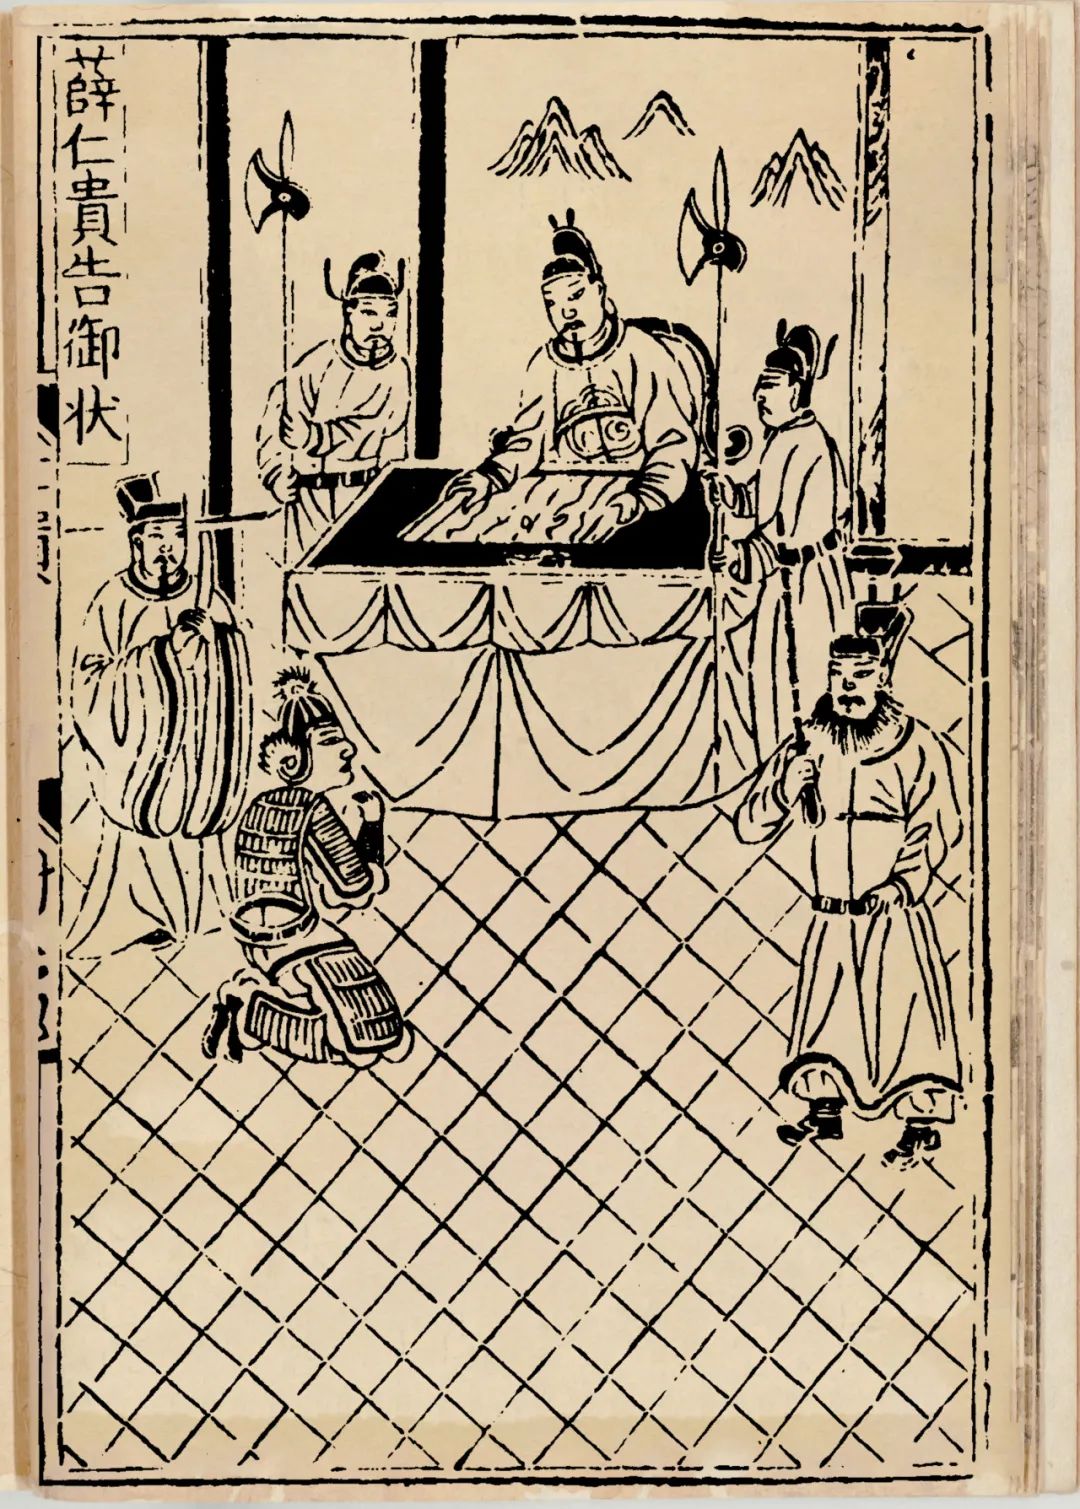 薛仁貴告御状